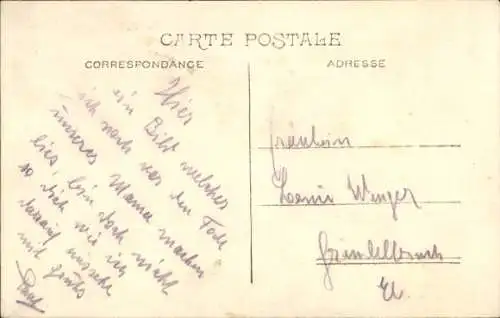 CARTE POSTALE
CORRESPONDANCE
ADRESSE
Hier
ein Bild welches
ich noch vor dem Tode
unserer Mama machen
lies, bin doch nicht
so dick wie ich
darauf aussehe
mit Gruss
Fräulein
Wenger
El.